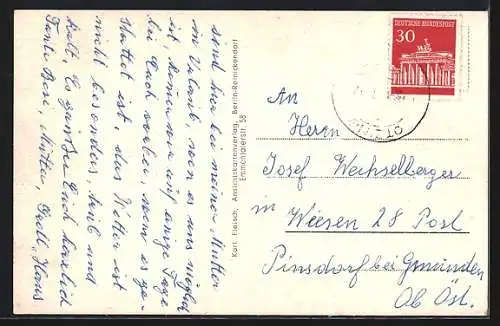 sind hier bei meiner Mutter
in Urlaub, wenn es uns möglich
ist, kommen wir auf einige Tage
bei Euch vorbei, wenn es ge-
stattet ist, das Wetter ist
nicht besonders, trüb und
kalt, Es grüßen Euch herzlich
Tante Mutter, Hans
Kart. Fleisch, Ansichtskartenverlag, Berlin-Reinickendorf
Emmentalerstr. 58
DEUTSCHE BUNDESPOST
30
An
Herrn
Josef Wechselberger
in Wiesen 28 Post
Pinsdorf bei Gmunden
Ob Öst.